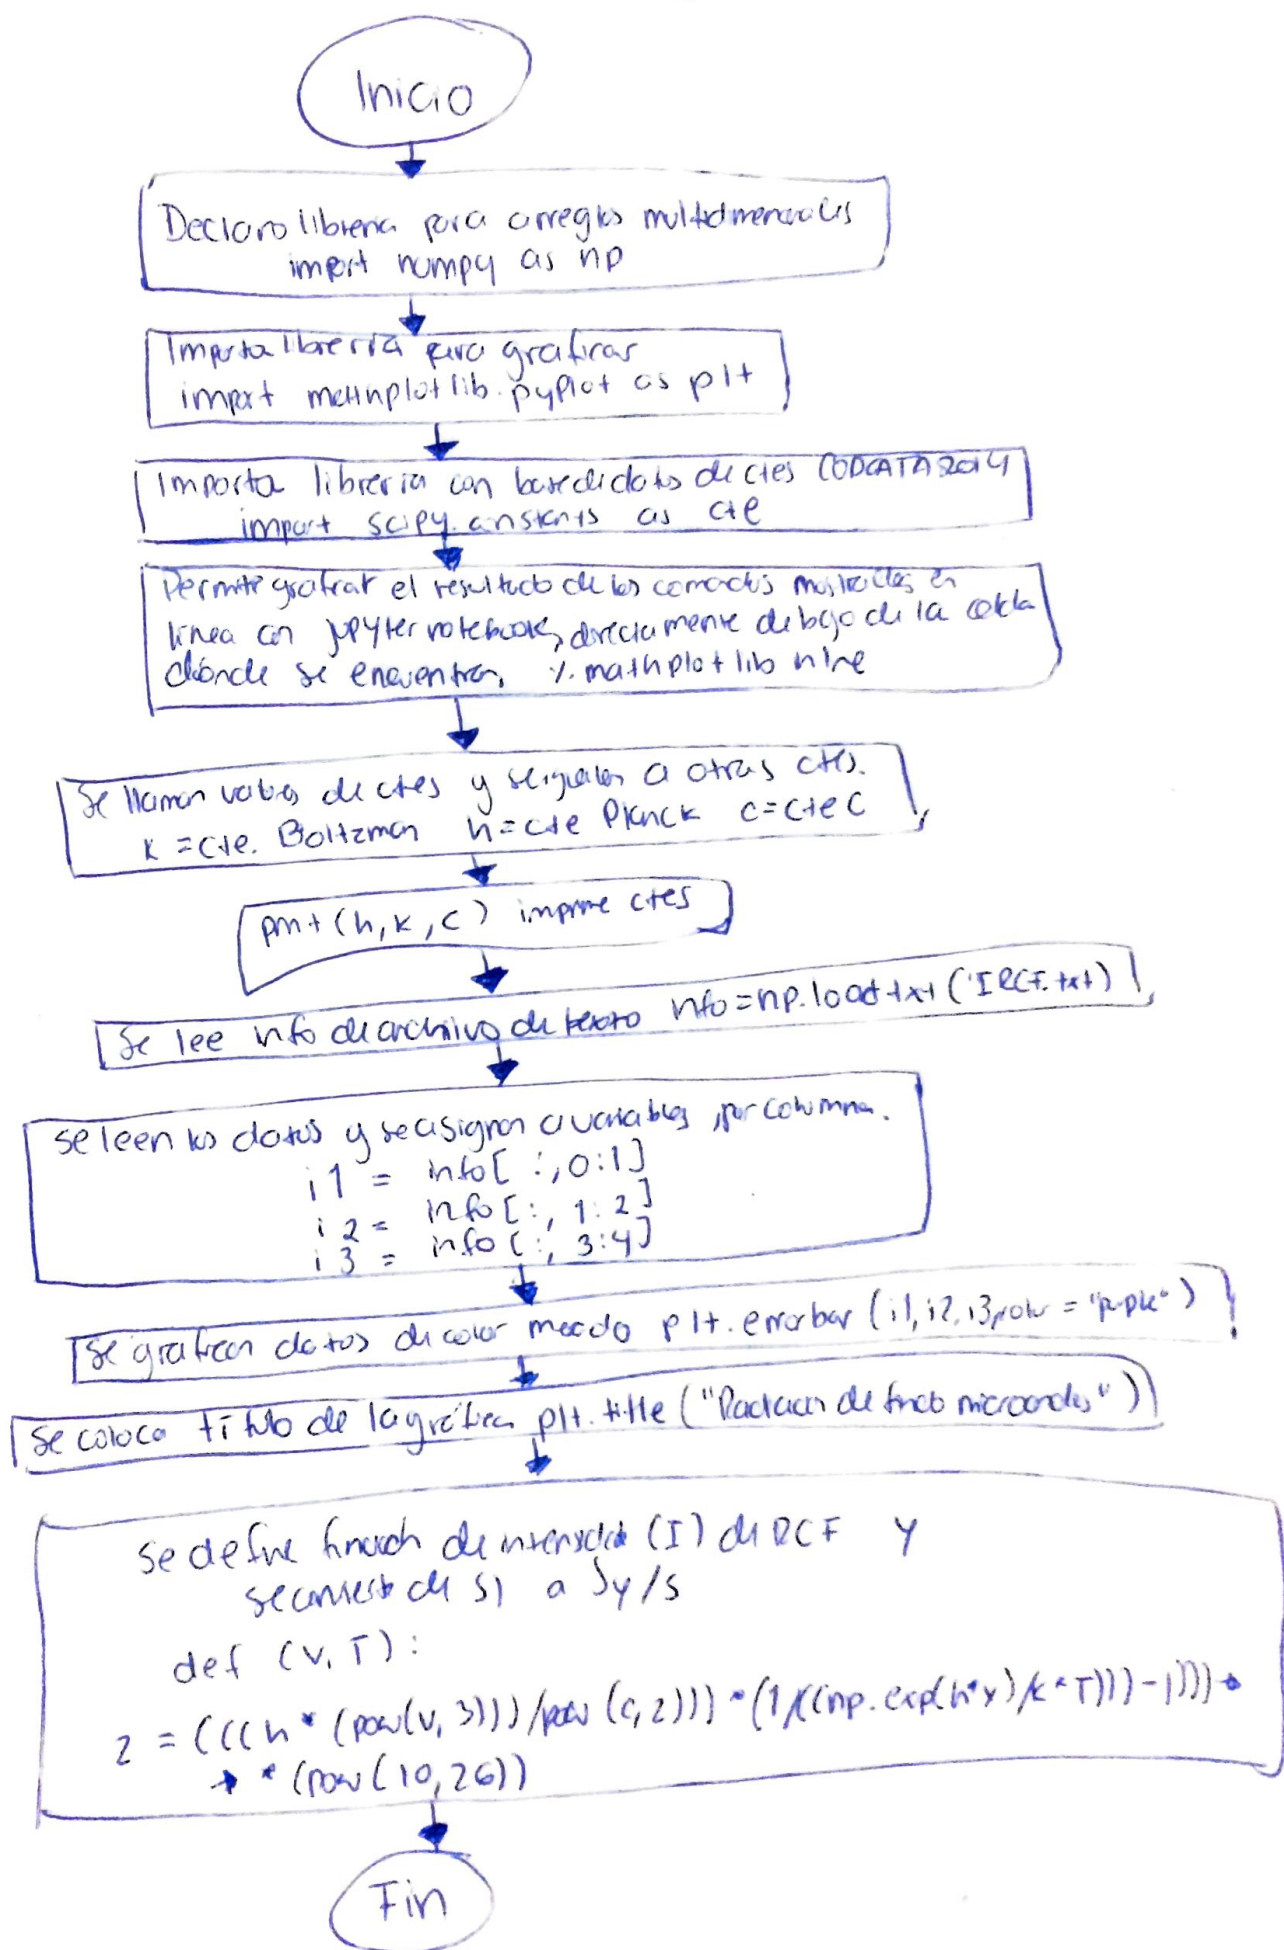 Inicio
Declaro libreria para arreglos multidimensionales
import numpy as np
Importa librería para graficar
import mathplotlib.pyplot as plt
Importa librería con base de datos de ctes CODATA 2014
import scipy.constants as cte
Permite graficar el resultado de los comandos mostrados en
linea con jupyter notebook, directamente debajo de la celda
dónde se encuentran, %mathplotlib inline
Se llaman valores de ctes y se igualan a otras ctes.
k = cte. Boltzman h = cte Planck c = cte c
print (h, k, c) imprime ctes
Se lee info de archivo de texto info = np.loadtxt ('IRCF.txt)
Se leen los datos y se asignan a variables, por columna.
i1 = info[ :, 0:1]
i2 = info[:, 1:2]
i3 = info[:, 3:4]
Se grafican datos de color morado plt.errorbar (i1, i2, i3, color = "purple")
Se coloca título de la gráfica plt.title ("Radiacion de fondo microondas")
Se define función de intensidad (I) de RCF y
se convierte de SI a Jy/s
def (v, T):
z = (((h * (pow(v, 3)))/pow (c, 2))) * (1/((np.exp(h*v)/k*T))) - 1)))
* (pow(10, 26))
Fin